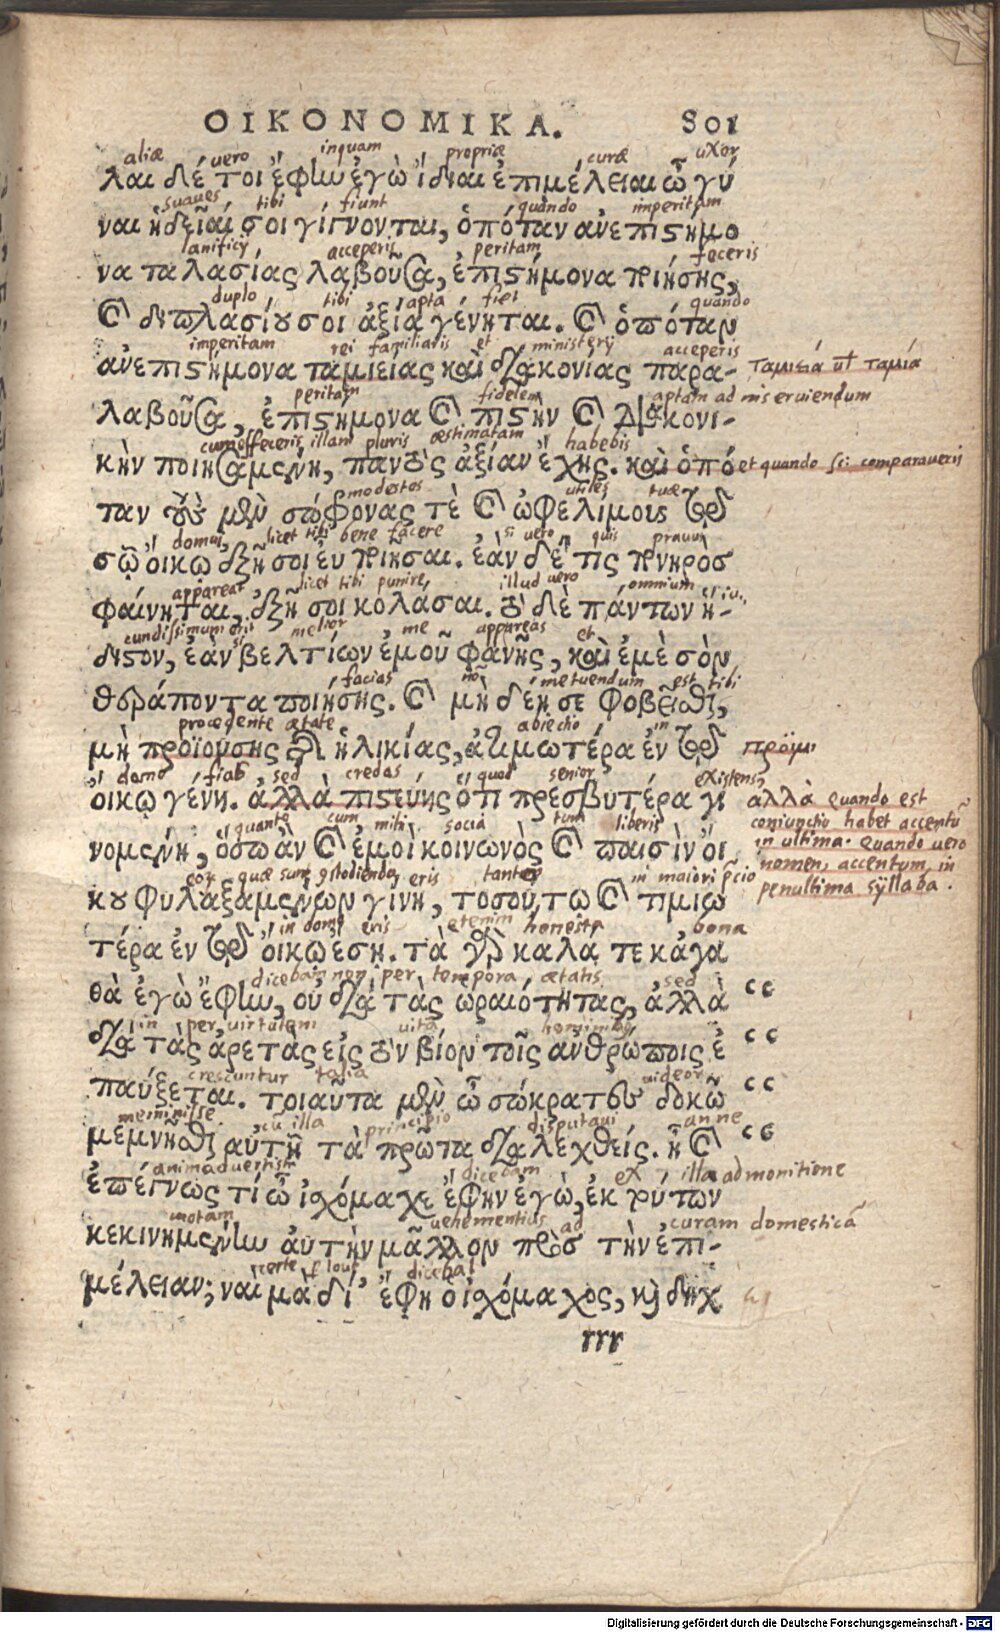 ΟΙΚΟΝΟΜΙΚΑ. 501
aliæ vero inquam propriæ curæ uxor
λαι δέ τοι ἔφην ἐγὼ ἴδιαι ἐπιμέλειαι ὦ γύ
suaves tibi fiunt quando imperitam
ναι ἡδεῖαί σοι γίγνονται, ὁπόταν ἀνεπιστήμο
lanificij acceperis peritam feceris
να ταλασίας λαβοῦσα, ἐπιστήμονα ποιήσῃς,
duplo tibi apta fiet quando
καὶ διπλασίου σοι ἀξία γένηται. καὶ ὁπόταν
imperitam rei familiaris et ministerij acceperis
ἀνεπιστήμονα ταμιείας καὶ διακονίας παρα- ταμιεία vel ταμία
peritam fidelem aptam ad inserviendum
λαβοῦσα, ἐπιστήμονα καὶ πιστὴν καὶ διακονι-
cum effeceris illam pluris æstimatam habebis
κὴν ποιησαμένη, παντὸς ἀξίαν ἔχῃς. καὶ ὁπό et quando sci: comparaveris
modestos utiles tuæ
ταν τοὺς μὲν σώφρονας τὲ καὶ ὠφελίμους τῷ
domui, licet tibi bene facere si vero quis pravus
σῷ οἴκῳ ἐξῇ σοι εὖ ποιῆσαι. ἐὰν δέ τις πονηρὸσ
appareat licet tibi punire, illud vero omnium
φαίνηται, ἐξῇ σοι κολάσαι. τὸ δὲ πάντων ἥ-
cundissimum erit si melior me appareas et
διστον, ἐὰν βελτίων ἐμοῦ φανῇς, καὶ ἐμὲ σὸν
facias non metuendum est tibi
θεράποντα ποιήσῃς. καὶ μὴ δέῃ σε φοβεῖσθαι,
procedente ætate abiectio in
μὴ προϊούσης τῆς ἡλικίας, ἀτιμωτέρα ἐν τῷ
domo fias sed credas quod senior existens,
οἴκῳ γένῃ. ἀλλὰ πιστεύῃς ὅτι πρεσβυτέρα γι αλλὰ quando est
coniunctio habet accentũ
quanto cum mihi socia tum liberis
νομένη, ὅσῳ ἂν καὶ ἐμοὶ κοινωνὸς καὶ παισὶν οἴ in ultima. Quando vero
nomen, accentum in
quæ sunt custodienda, eris tanto in maiori precio
κου φυλαξαμένων γίνῃ, τοσούτῳ καὶ τιμιω penultima syllaba.
in domo eris etenim honesta bona
τέρα ἐν τῷ οἴκῳ ἔσῃ. τὰ γὰρ καλά τε κἀγα
dicebam non per tempora ætatis sed
θὰ ἐγὼ ἔφην, οὐ διὰ τὰς ὡραιότητας, ἀλλὰ
in per virtutem vita hominibus
διὰ τὰς ἀρετὰς εἰς τὸν βίον τοῖς ἀνθρώποις ἐ
crescuntur talia videor
παύξεται. τοιαῦτα μὲν ὦ σώκρατες δοκῶ
meminisse cũ illa principio disputavi an ne
μεμνῆσθαι αὐτῇ τὰ πρῶτα διαλεχθείς. ἦ καὶ
animadvertisti dicebam ex illa admonitione
ἐπέγνως τί ὦ ἰσχόμαχε ἔφην ἐγὼ, ἐκ τούτων
motam vehementius ad curam domesticã
κεκινημένην αὐτὴν μᾶλλον πρὸσ τὴν ἐπι-
certe dicebat
μέλειαν; ναὶ μὰ δί' ἔφη ὁ ἰσχόμαχος, καὶ δηχ
rrr
Digitalisierung gefördert durch die Deutsche Forschungsgemeinschaft - DFG